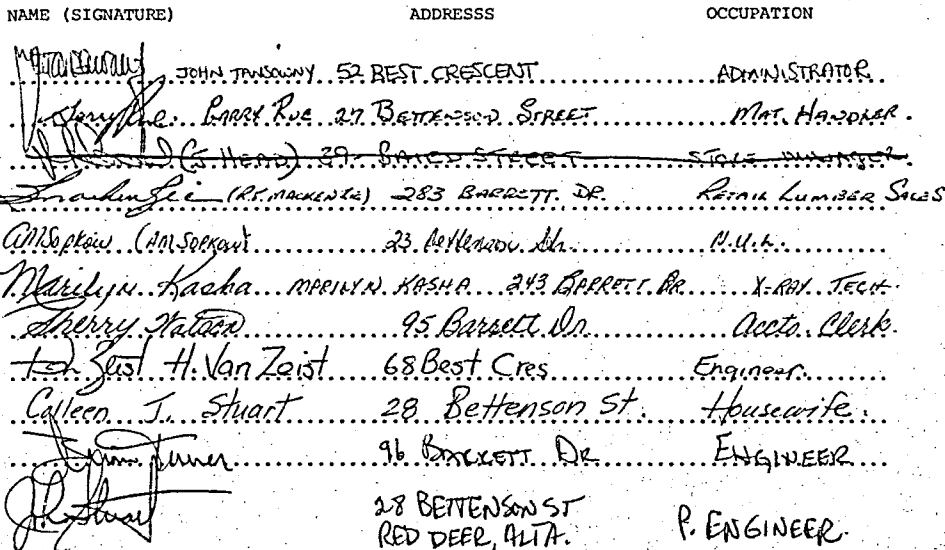 NAME (SIGNATURE) ADDRESSS OCCUPATION
JOHN TANSOWNY 52 BEST CRESCENT ADMINISTRATOR
BARRY RUE 27 BETTENSON STREET MAT. HANDLER.
(J. HEAD) 39 STREET
(R.T. MACKENZIE) 283 BARRETT. DR. RETAIL LUMBER SALES
AM Sopkow (AM SOPKOW) 23 Dr.
Marilyn Kasha MARILYN KASHA 243 BARRETT DR X-RAY TECH.
Sherry Watson 95 Barrett Dr. Accts. Clerk.
Zeist H. Van Zeist 68 Best Cres Engineer.
Colleen J. Stuart 28 Bettenson St. Housewife.
Turner 96 BARRETT DR ENGINEER
Stuart 28 BETTENSON ST
RED DEER, ALTA. P. ENGINEER.